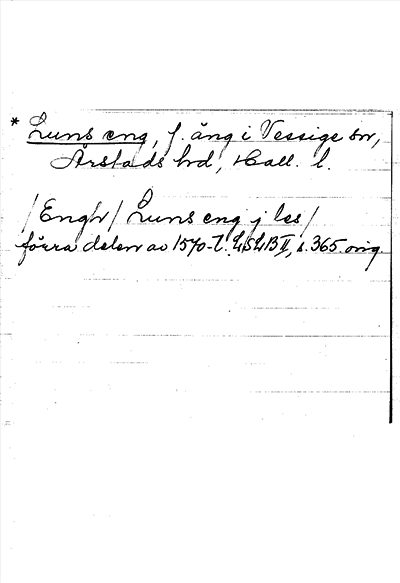 * Luns eng, f. äng i Vessige sn,
Årstads hd, Hall. l.
/Engh/ Luns eng j les/
förra delen av 1570-t. LSLB II, s. 365. orig.